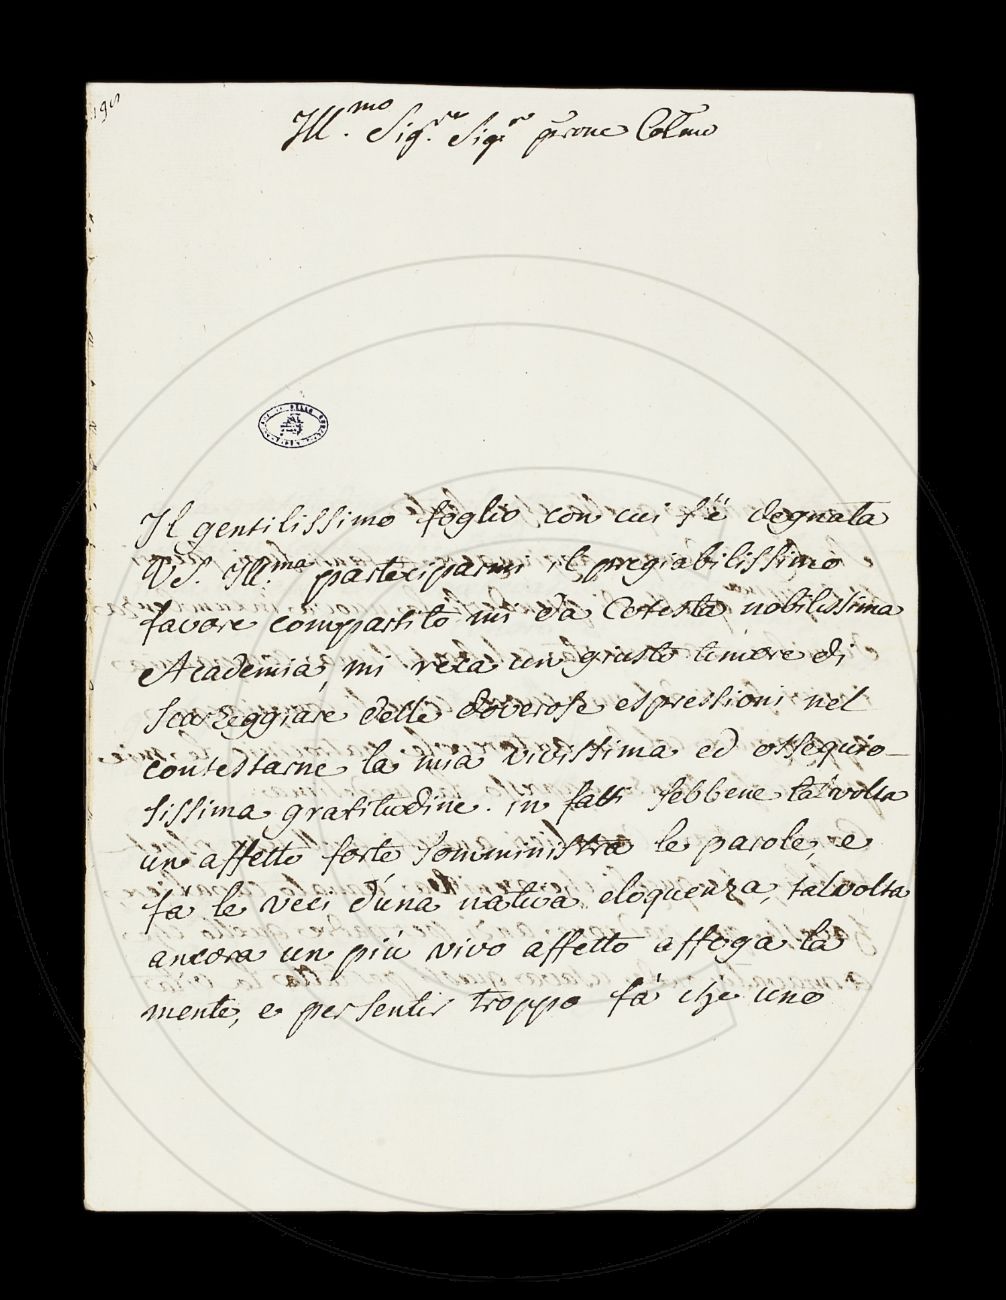 Ill.mo Sig.re Sig.re Prone Colmo
Il gentilissimo foglio con cui s'è degnata
VS. Ill.ma parteciparmi il pregiabilissimo
favore compartito mi da Cotesta nobilissima
Academia, mi reca un giusto timore di
scarzeggiare delle doverose espressioni nel
contestarne la mia vivissima ed ossequio-
sissima gratitudine. in fatti sebbene tal'volta
un affetto forte somministra le parole, e
fà le veci d'una nativa eloquenza, talvolta
ancora un più vivo affetto affoga la
mente, e per sentir troppo fà che uno